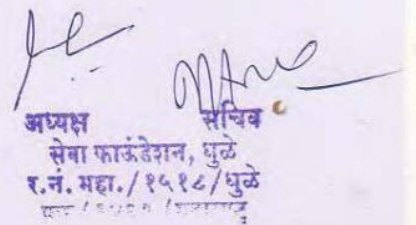 अध्यक्ष सचिव
सेवा फाऊंडेशन, धुळे
र.नं. महा./१५१८/धुळे